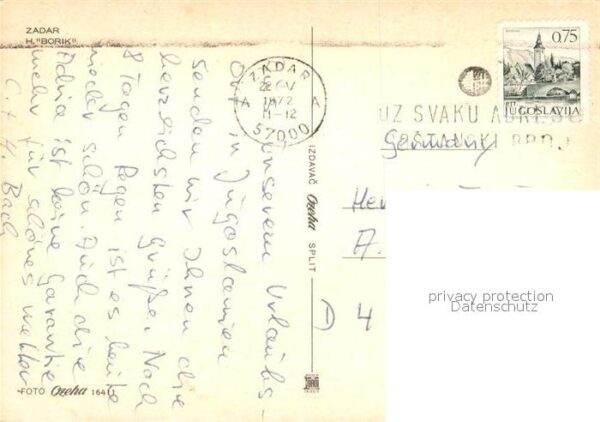 ZADAR
H. "BORIK"
Aus unserem Urlaubs-
Ort in Jugoslawien
senden wir Ihnen die
herzlichsten Grüße. Nach
8 Tagen Regen ist es heute
wieder schön. Auch die
Adria ist keine Garantie
mehr für schönes Wetter
C. + H. Bach
FOTO Ozeha 16411
IZDAVAČ Ozeha SPLIT
ZADAR
1972
11-12
A A
57000
0,75
JUGOSLAVIJA
UZ SVAKU
POŠTANSKI BROJ
Germany
A.
D 4
privacy protection
Datenschutz